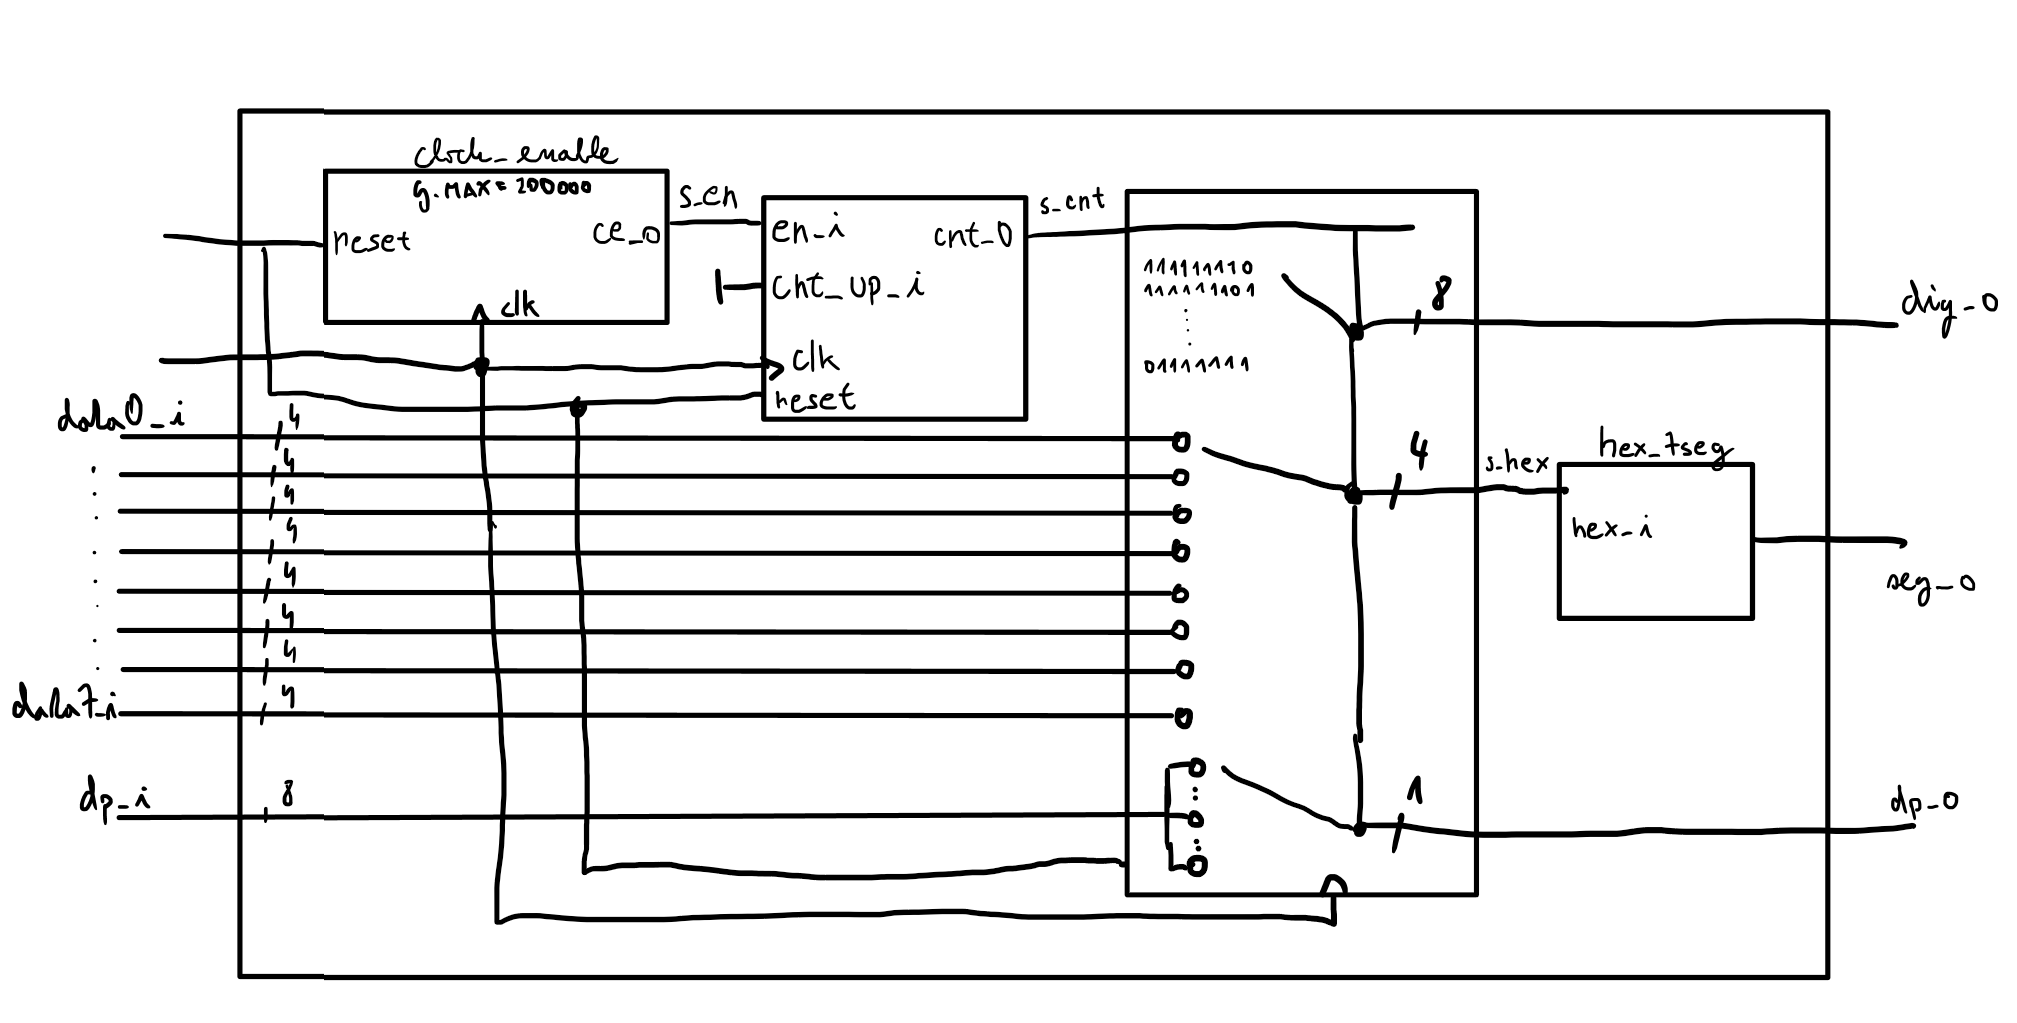 clock_enable
g.MAX = 200000
reset
ce_o
clk
s_en
en_i
cnt_o
cnt_up_i
clk
reset
s_cnt
11111110
11111101
01111111
8
dig_o
data0_i
4
4
4
4
4
4
4
4
data7_i
4
s_hex
hex_7seg
hex_i
seg_o
dp_i
8
1
dp_o